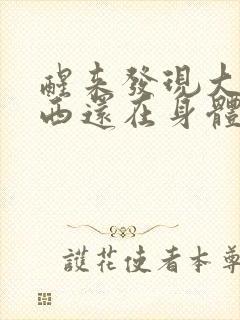 醒來發現大
西還在身體
護花使者本尊